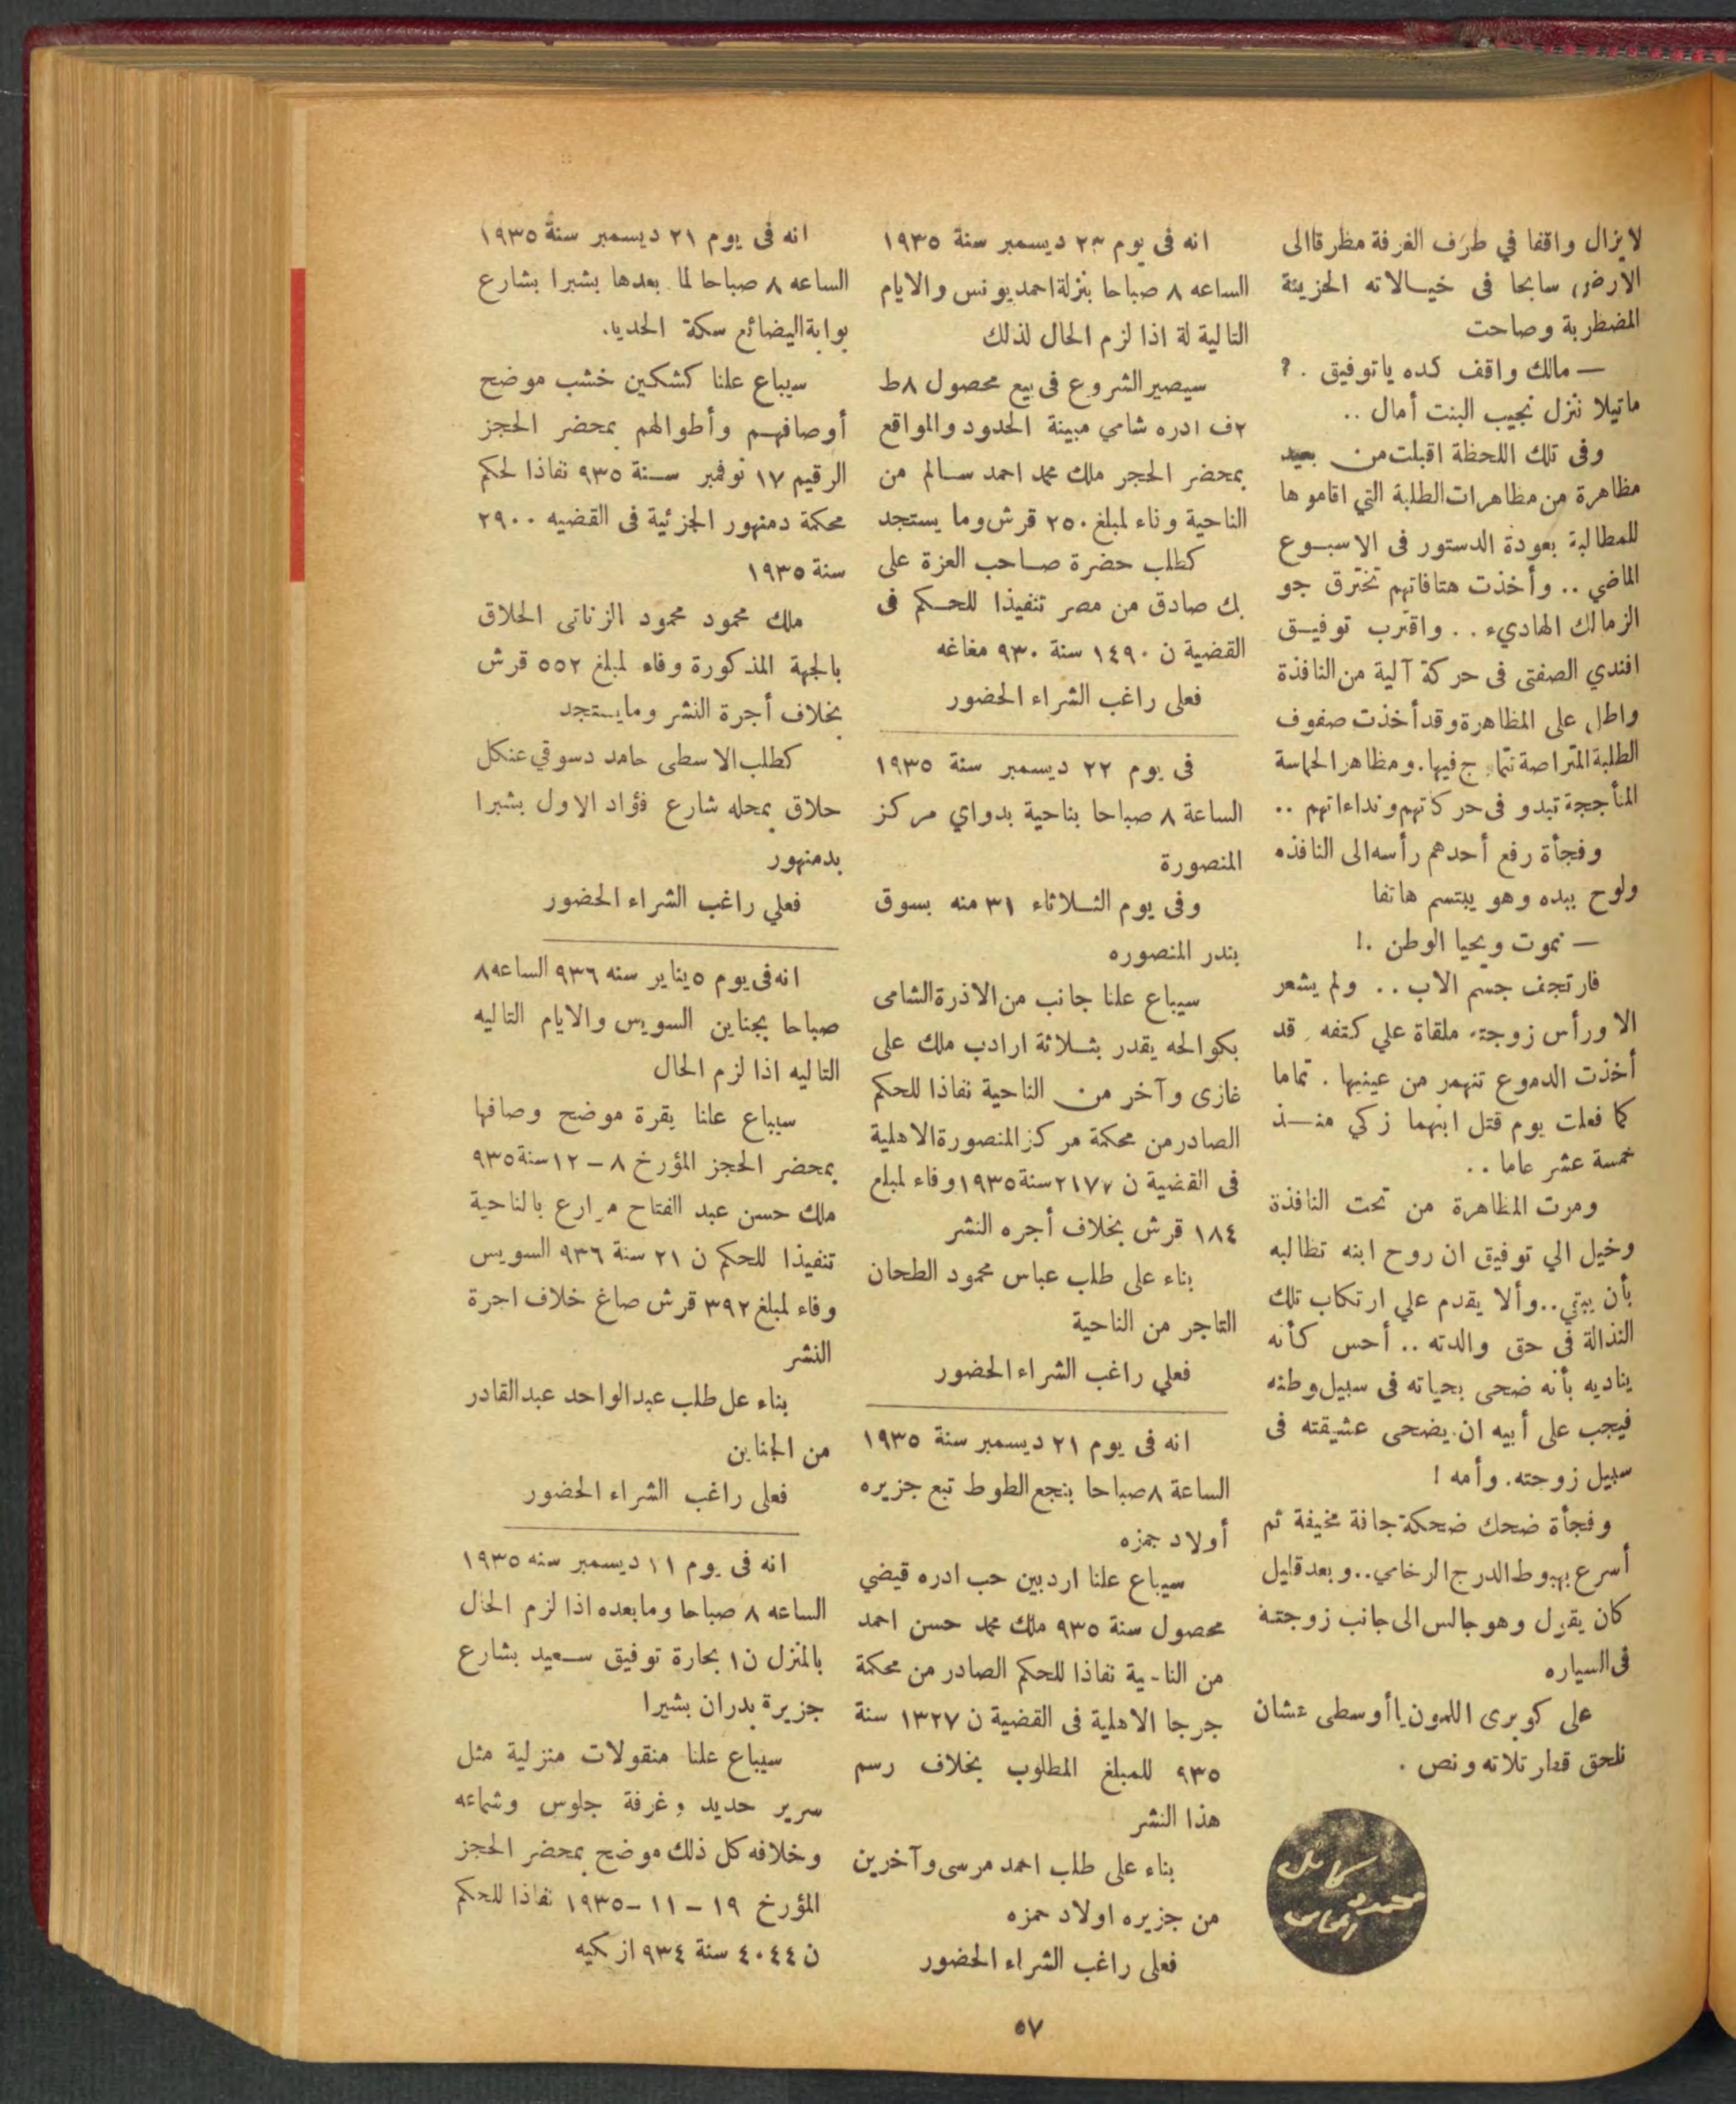 لايزال واقفا في طرف الغرفة مطرقا الى
الارض سابحا فى خيالاته الحزينة
المضطربة وصاحت
— مالك واقف كده ياتوفيق . ?
ماتيلا ننزل نجيب البنت أمال ..
وفى تلك اللحظة اقبلت من بعيد
مظاهرة من مظاهرات الطلبة التي اقاموها
للمطالبة بعودة الدستور فى الاسبوع
الماضي .. وأخذت هتافاتهم تخترق جو
الزمالك الهاديء .. واقترب توفيق
افندي الصفتى فى حركة آلية من النافذة
واطل على المظاهرة وقد أخذت صفوف
الطلبة المتراصة تتماوج فيها. ومظاهر الحماسة
المتأججة تبدو فى حركاتهم ونداءاتهم ..
وفجأة رفع أحدهم رأسه الى النافذه
ولوح بيده وهو يبتسم هاتفا
— نموت ويحيا الوطن .!
فارتجف جسم الاب .. ولم يشعر
الا ورأس زوجته ملقاة علي كتفه . قد
أخذت الدموع تنهمر من عينيها . تماما
كما فعلت يوم قتل ابنهما زكي منذ
خمسة عشر عاما ..
ومرت المظاهرة من تحت النافذة
وخيل الي توفيق ان روح ابنه تطالبه
بأن يبتي.. وألا يقدم علي ارتكاب تلك
النذالة فى حق والدته .. أحس كأنه
يناديه بأنه ضحى بحياته فى سبيل وطنه
فيجب على أبيه ان يضحى عشيقته فى
سبيل زوجته. وأمه !
وفجأة ضحك ضحكة جافة مخيفة ثم
أسرع بهبوط الدرج الرخامي.. وبعد قليل
كان يقول وهو جالس الى جانب زوجتة
فى السياره
على كوبرى الليمون ياأوسطى عشان
نلحق قطار تلاته ونص .
محمود كامل
المحامى
انه فى يوم ٢٣ ديسمبر سنة ١٩٣٥
الساعه ٨ صباحا بنزلة احمد يونس والايام
التالية لة اذا لزم الحال لذلك
سيصير الشروع فى بيع محصول ٨ط
٢ف ادره شامي مبينة الحدود والمواقع
بمحضر الحجر ملك محمد احمد سالم من
الناحية وناء لمبلغ ٢٥٠ قرش وما يستجد
كطلب حضرة صاحب العزة على
بك صادق من مصر تنفيذا للحكم فى
القضية ن ١٤٩٠ سنة ٩٣٠ مغاغه
فعلى راغب الشراء الحضور
فى يوم ٢٢ ديسمبر سنة ١٩٣٥
الساعة ٨ صباحا بناحية بدواي مركز
المنصورة
وفى يوم الثلاثاء ٣١ منه بسوق
بندر المنصوره
سيباع علنا جانب من الاذرة الشامى
بكوالحه يقدر بثلاثة ارادب ملك على
غازى وآخر من الناحية نفاذا للحكم
الصادر من محكمة مركز المنصورة الاهلية
فى القضية ن ٢١٧٧ سنة ١٩٣٥ وفاء لمبلغ
١٨٤ قرش بخلاف أجره النشر
بناء على طلب عباس محمود الطحان
التاجر من الناحية
فعلي راغب الشراء الحضور
انه فى يوم ٢١ ديسمبر سنة ١٩٣٥
الساعة ٨ صباحا بنجع الطوط تبع جزيره
أولاد حمزه
سيباع علنا اردبين حب ادره قيضي
محصول سنة ٩٣٥ ملك محمد حسن احمد
من الناحية نفاذا للحكم الصادر من محكمة
جرجا الاهلية فى القضية ن ١٣٢٧ سنة
٩٣٥ للمبلغ المطلوب بخلاف رسم
هذا النشر
بناء على طلب احمد مرسى وآخرين
من جزيره اولاد حمزه
فعلى راغب الشراء الحضور
انه فى يوم ٢١ ديسمبر سنة ١٩٣٥
الساعه ٨ صباحا لما بعدها بشبرا بشارع
بوابة البضائع سكة الحديد.
سيباع علنا كشكين خشب موضح
أوصافهم وأطوالهم بمحضر الحجز
الرقيم ١٧ نوفمبر سنة ٩٣٥ نفاذا لحكم
محكمة دمنهور الجزئية فى القضيه ٢٩٠٠
سنة ١٩٣٥
ملك محمود محمود الزناتى الحلاق
بالجهة المذكورة وفاء لمبلغ ٥٥٢ قرش
بخلاف أجرة النشر ومايستجد
كطلب الاسطى حامد دسوقي عنكل
حلاق بمحله شارع فؤاد الاول بشبرا
بدمنهور
فعلي راغب الشراء الحضور
انه فى يوم ٥ يناير سنه ٩٣٦ الساعه ٨
صباحا بجناين السويس والايام التاليه
التاليه اذا لزم الحال
سيباع علنا يقرة موضح وصافها
بمحضر الحجز المؤرخ ٨ – ١٢ سنة ٩٣٥
ملك حسن عبد الفتاح مزارع بالناحية
تنفيذا للحكم ن ٢١ سنة ٩٣٦ السويس
وفاء لمبلغ ٣٩٢ قرش صاغ خلاف اجرة
النشر
بناء عل طلب عبدالواحد عبدالقادر
من الجناين
فعلى راغب الشراء الحضور
انه فى يوم ١١ ديسمبر سنه ١٩٣٥
الساعه ٨ صباحا ومابعده اذا لزم الحال
بالمنزل ن١ بحارة توفيق سعيد بشارع
جزيرة بدران بشبرا
سيباع علنا منقولات منزلية مثل
سرير حديد وغرفة جلوس وشماعه
وخلافه كل ذلك موضح بمحضر الحجز
المؤرخ ١٩ – ١١ – ١٩٣٥ نفاذا للحكم
ن ٤٠٤٤ سنة ٩٣٤ ازبكيه
٥٧